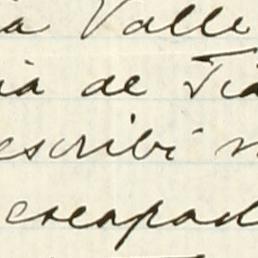 a Valle
ia de Tia
escribi n
escapad